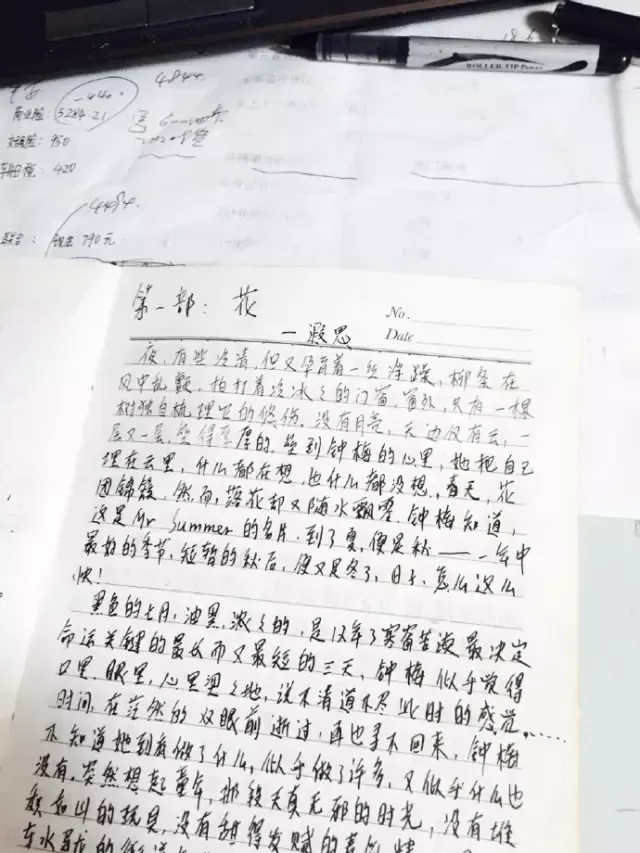 ROLLER-TIP Power
484.
-440
商业险: 5284.21
交强险: 950
车船税: 420
448.
联合: 现金 790元
第一部: 花
No.
一 遐思
Date
夜,有些冷清,但又孕育着一丝浮躁,柳条在
风中乱颤,拍打着冷冰冰的门窗,窗外,只有一棵
树独自梳理它的悠伤。没有月亮,天边仅有云,一
层又一层,垫得厚厚的.垫到钟梅的心里,她把自己
埋在云里,什么都在想,也什么都没想。春天,花
团锦簇,然而,落花却又随水飘零.钟梅知道,
这是Mr Summer的名片.到了夏,便是秋——一年中
最好的季节,短暂的秋后,便又是冬了,日子,怎么这么
快!
黑色的七月,油黑,浓浓的,是12年了寒窗苦读最决定
命运关键的最长而又最短的三天,钟梅似乎觉得
口里.眼里,心里涩涩地,说不清道不尽此时的感觉......
时间,在茫然的双眼前逝过,再也寻不回来,钟梅
不知道她到底做了什么,似乎做了许多,又似乎什么也
没有.突然想起童年,那段天真无邪的时光,没有堆
积如山的玩具,没有甜得发腻的
车水马龙的街道